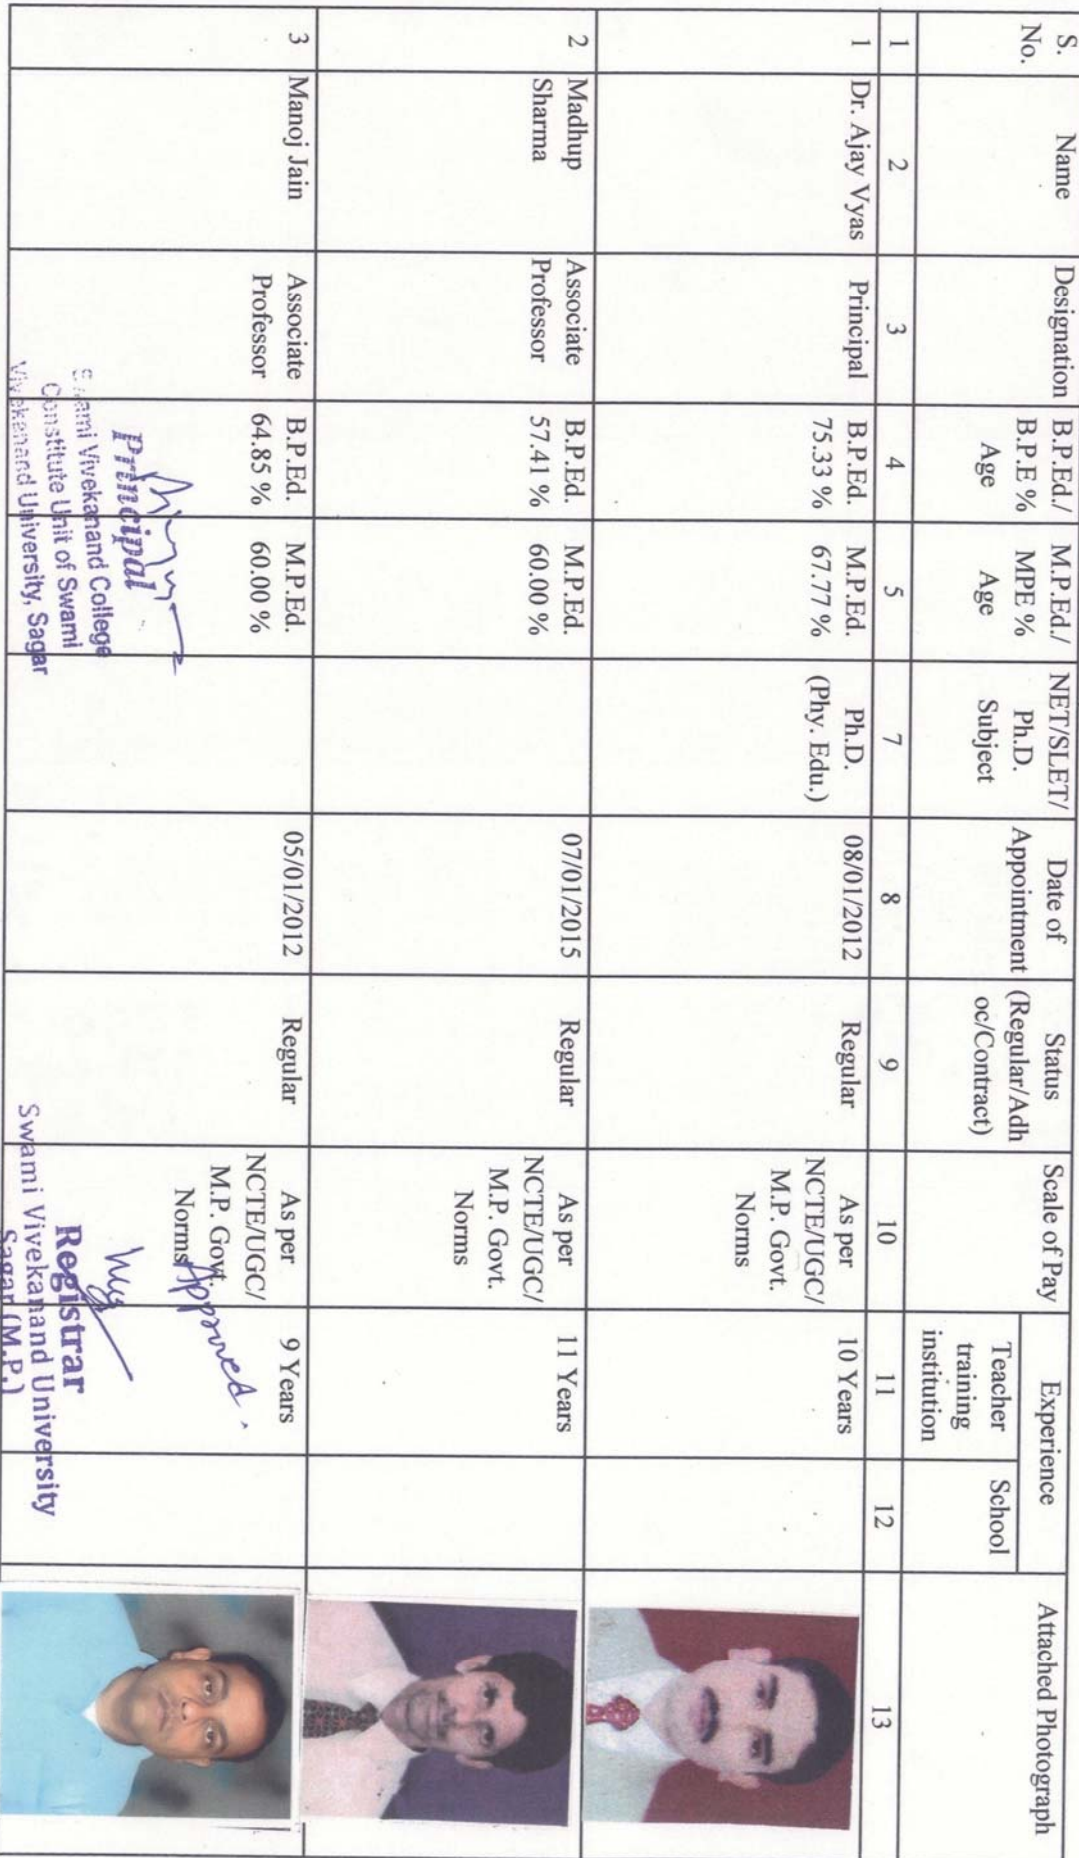 S. No. Name Designation B.P.Ed./ B.P.E % Age M.P.Ed./ MPE % Age NET/SLET/ Ph.D. Subject Date of Appointment Status (Regular/Adh oc/Contract) Scale of Pay Experience Teacher training institution School Attached Photograph
1 2 3 4 5 7 8 9 10 11 12 13
1 Dr. Ajay Vyas Principal B.P.Ed. 75.33 % M.P.Ed. 67.77 % Ph.D. (Phy. Edu.) 08/01/2012 Regular As per NCTE/UGC/ M.P. Govt. Norms 10 Years
2 Madhup Sharma Associate Professor B.P.Ed. 57.41 % M.P.Ed. 60.00 % 07/01/2015 Regular As per NCTE/UGC/ M.P. Govt. Norms 11 Years
3 Manoj Jain Associate Professor B.P.Ed. 64.85 % M.P.Ed. 60.00 % 05/01/2012 Regular As per NCTE/UGC/ M.P. Govt. Norms 9 Years
Approved.
Principal
Swami Vivekanand College
Constitute Unit of Swami
Vivekanand University, Sagar
Registrar
Swami Vivekanand University
Sagar (M.P.)